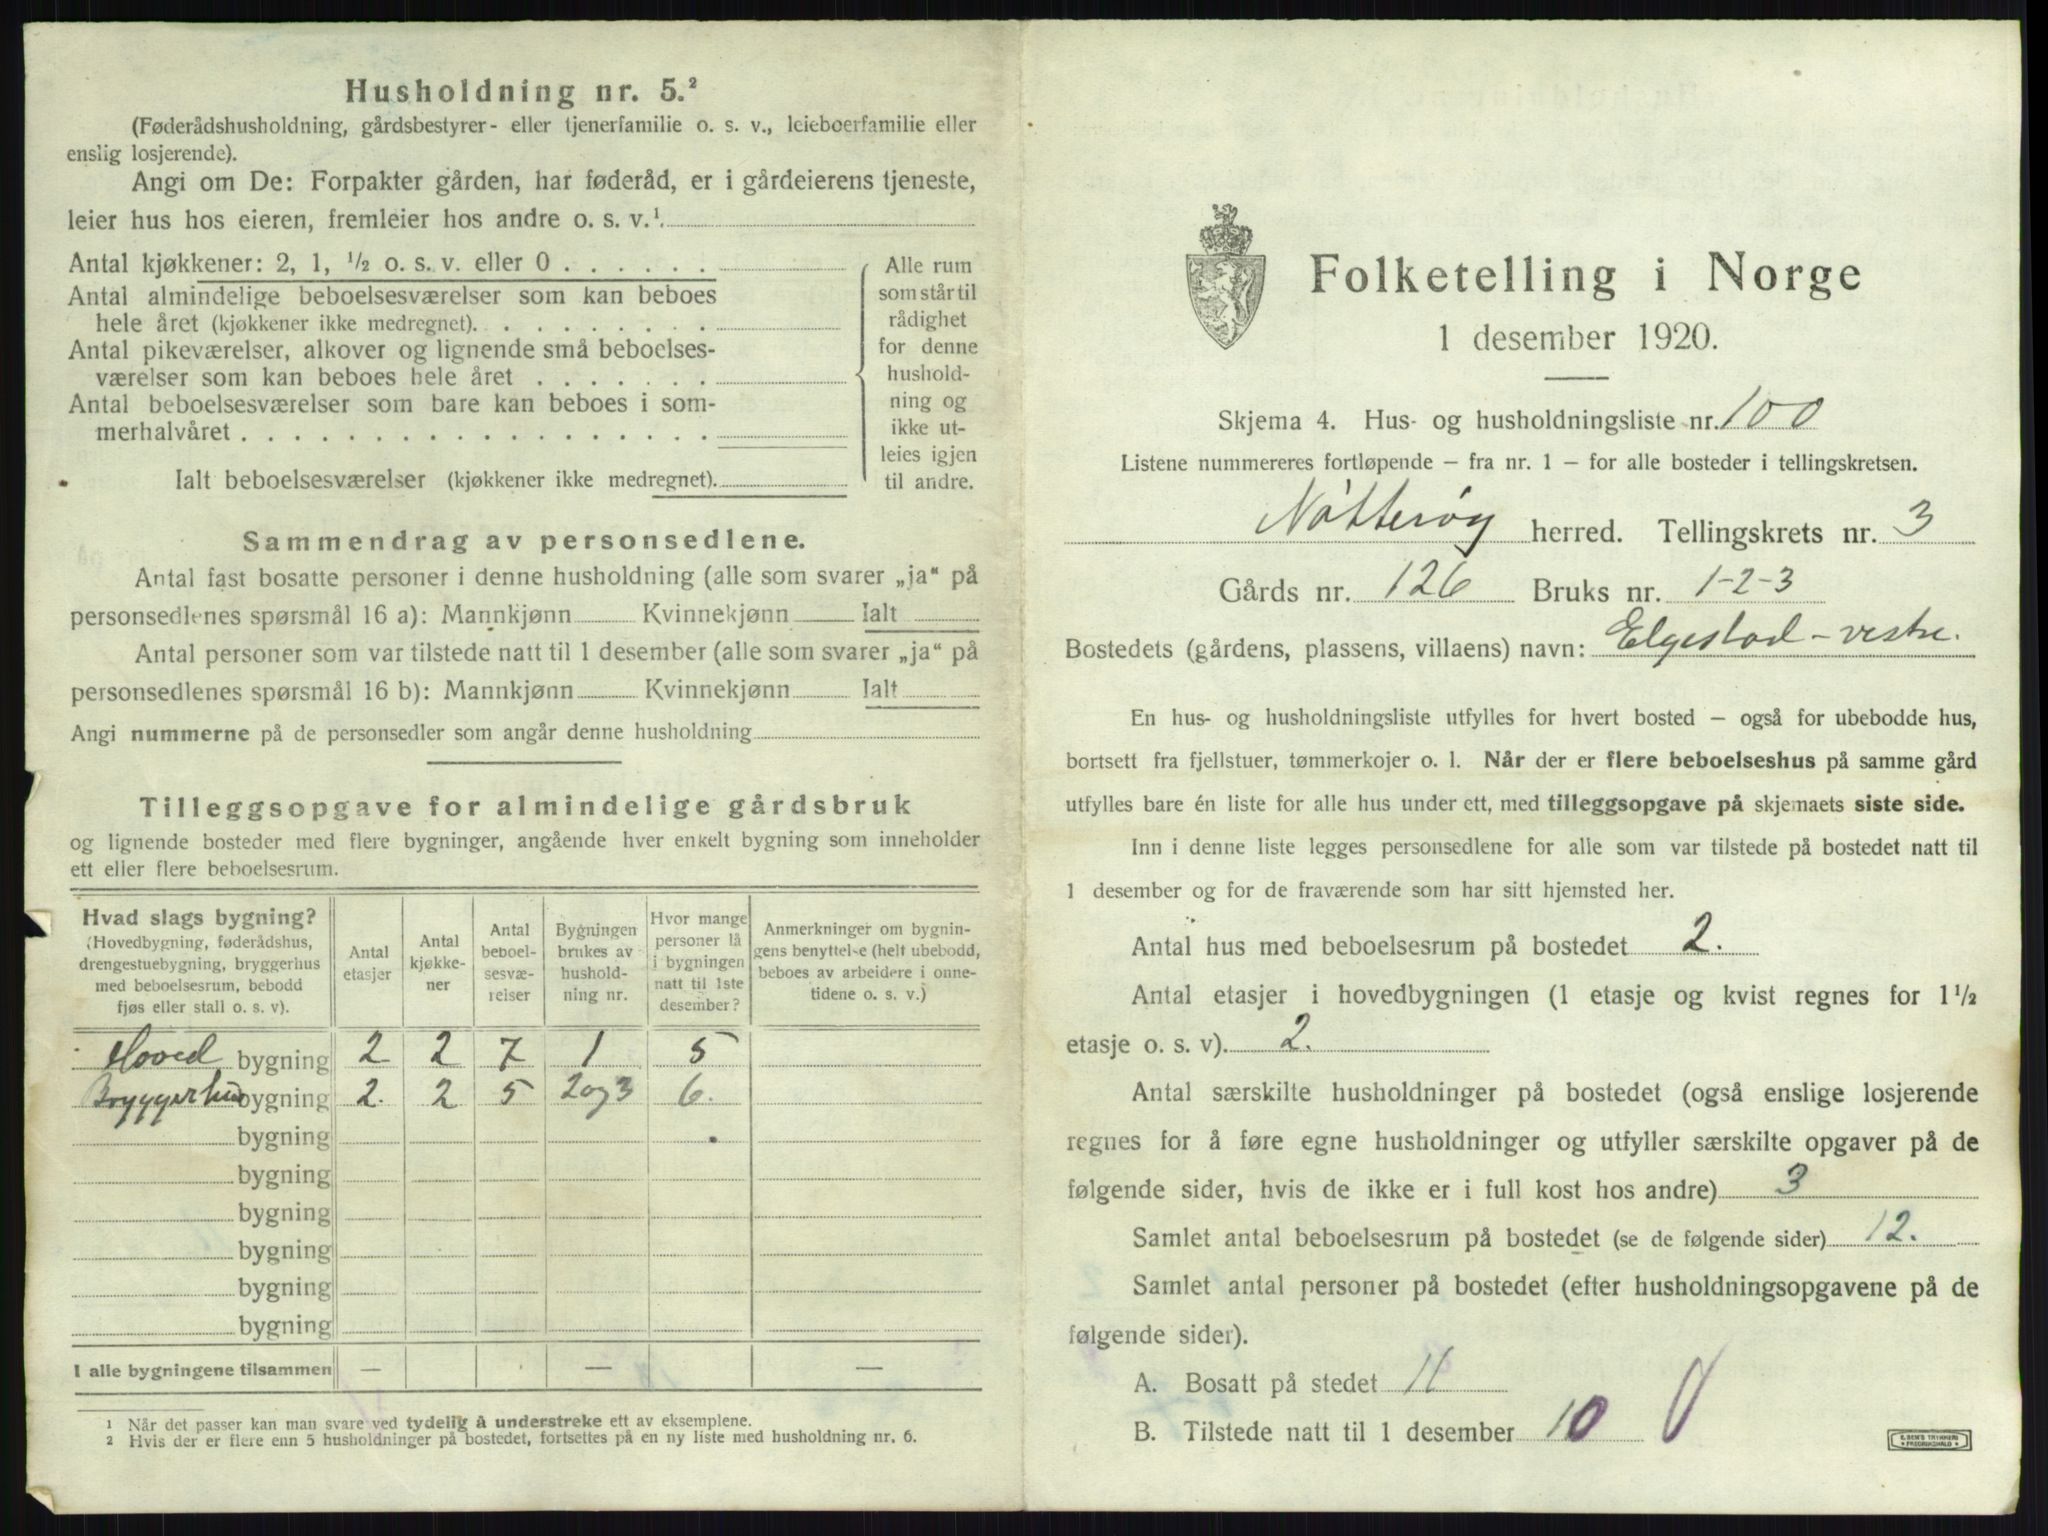 Husholdning nr. 5.²
(Føderådshusholdning, gårdsbestyrer- eller tjenerfamilie o. s. v., leieboerfamilie eller
enslig losjerende).
Angi om De: Forpakter gården, har føderåd, er i gårdeierens tjeneste,
leier hus hos eieren, fremleier hos andre o. s. v.¹
Antal kjøkkener: 2, 1, ½ o. s. v. eller 0 . . . . . .
Antal almindelige beboelsesværelser som kan beboes
hele året (kjøkkener ikke medregnet). . . . . . . . .
Antal pikeværelser, alkover og lignende små beboelses-
værelser som kan beboes hele året . . . . . . .
Antal beboelsesværelser som bare kan beboes i som-
merhalvåret . . . . . . . . . . . . . . . . . .
Ialt beboelsesværelser (kjøkkener ikke medregnet).
Alle rum
som står til
rådighet
for denne
hushold-
ning og
ikke ut-
leies igjen
til andre.
Sammendrag av personsedlene.
Antal fast bosatte personer i denne husholdning (alle som svarer „ja“ på
personsedlenes spørsmål 16 a): Mannkjønn Kvinnekjønn Ialt
Antal personer som var tilstede natt til 1 desember (alle som svarer „ja“ på
personsedlenes spørsmål 16 b): Mannkjønn Kvinnekjønn Ialt
Angi nummerne på de personsedler som angår denne husholdning
Tilleggsopgave for almindelige gårdsbruk
og lignende bosteder med flere bygninger, angående hver enkelt bygning som inneholder
ett eller flere beboelsesrum.
Hvad slags bygning?
(Hovedbygning, føderådshus,
drengestuebygning, bryggerhus
med beboelsesrum, bebodd
fjøs eller stall o. s. v).
Antal
etasjer
Antal
kjøkke-
ner
Antal
beboel-
sesvæ-
relser
Bygningen
brukes av
hushold-
ning nr.
Hvor mange
personer lå
i bygningen
natt til 1ste
desember?
Anmerkninger om bygnin-
gens benyttelse (helt ubebodd,
beboes av arbeidere i onne-
tidene o. s. v.)
Hoved bygning 2 2 7 1 5
Bryggerhus bygning 2. 2 5 2 og 3 6.
bygning
bygning
bygning
bygning
bygning
bygning
I alle bygningene tilsammen — — —
¹ Når det passer kan man svare ved tydelig å understreke ett av eksemplene.
² Hvis der er flere enn 5 husholdninger på bostedet, fortsettes på en ny liste med husholdning nr. 6.
Folketelling i Norge
1 desember 1920.
Skjema 4. Hus- og husholdningsliste nr. 100
Listene nummereres fortløpende – fra nr. 1 – for alle bosteder i tellingskretsen.
Nøtterøy herred. Tellingskrets nr. 3
Gårds nr. 126 Bruks nr. 1-2-3
Bostedets (gårdens, plassens, villaens) navn: Elgestad - vestre.
En hus- og husholdningsliste utfylles for hvert bosted – også for ubebodde hus,
bortsett fra fjellstuer, tømmerkojer o. l. Når der er flere beboelseshus på samme gård
utfylles bare én liste for alle hus under ett, med tilleggsopgave på skjemaets siste side.
Inn i denne liste legges personsedlene for alle som var tilstede på bostedet natt til
1 desember og for de fraværende som har sitt hjemsted her.
Antal hus med beboelsesrum på bostedet 2.
Antal etasjer i hovedbygningen (1 etasje og kvist regnes for 1½
etasje o. s. v). 2.
Antal særskilte husholdninger på bostedet (også enslige losjerende
regnes for å føre egne husholdninger og utfyller særskilte opgaver på de
følgende sider, hvis de ikke er i full kost hos andre) 3
Samlet antal beboelsesrum på bostedet (se de følgende sider) 12.
Samlet antal personer på bostedet (efter husholdningsopgavene på de
følgende sider).
A. Bosatt på stedet 11
B. Tilstede natt til 1 desember 10
E. SEM'S TRYKKERI
FREDRIKSHALD